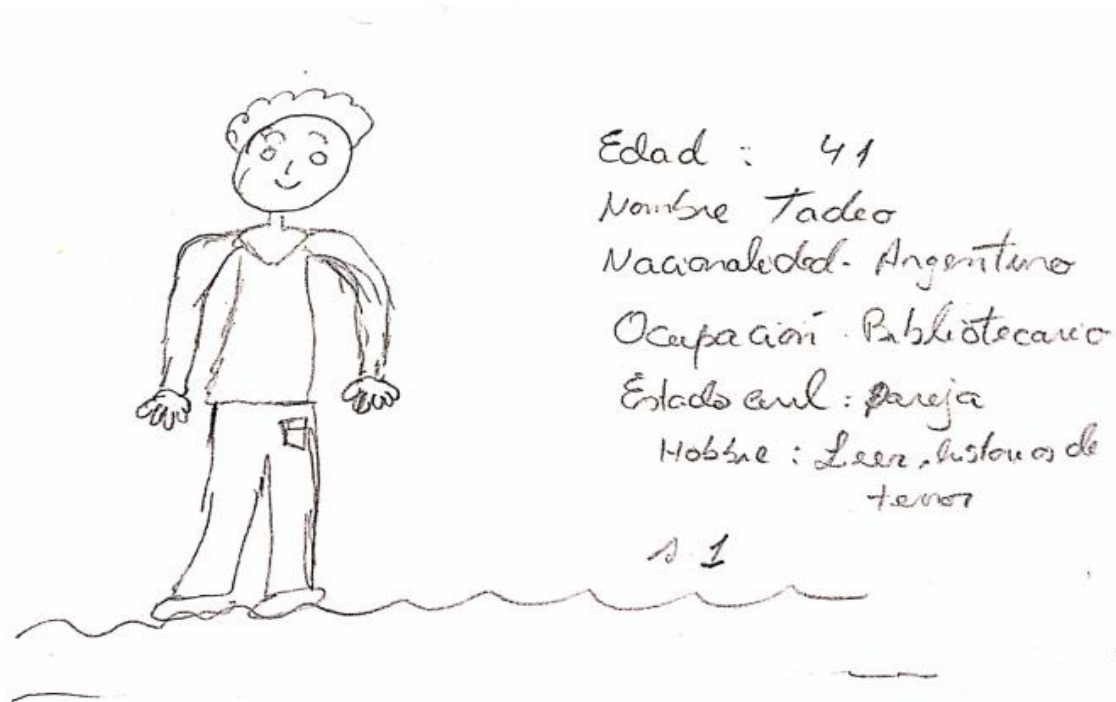 Edad : 41
Nombre Tadeo
Nacionalidad - Argentino
Ocupación Bibliotecario
Estado civil : pareja
Hobbie : Leer, historias de
terror
s. 1